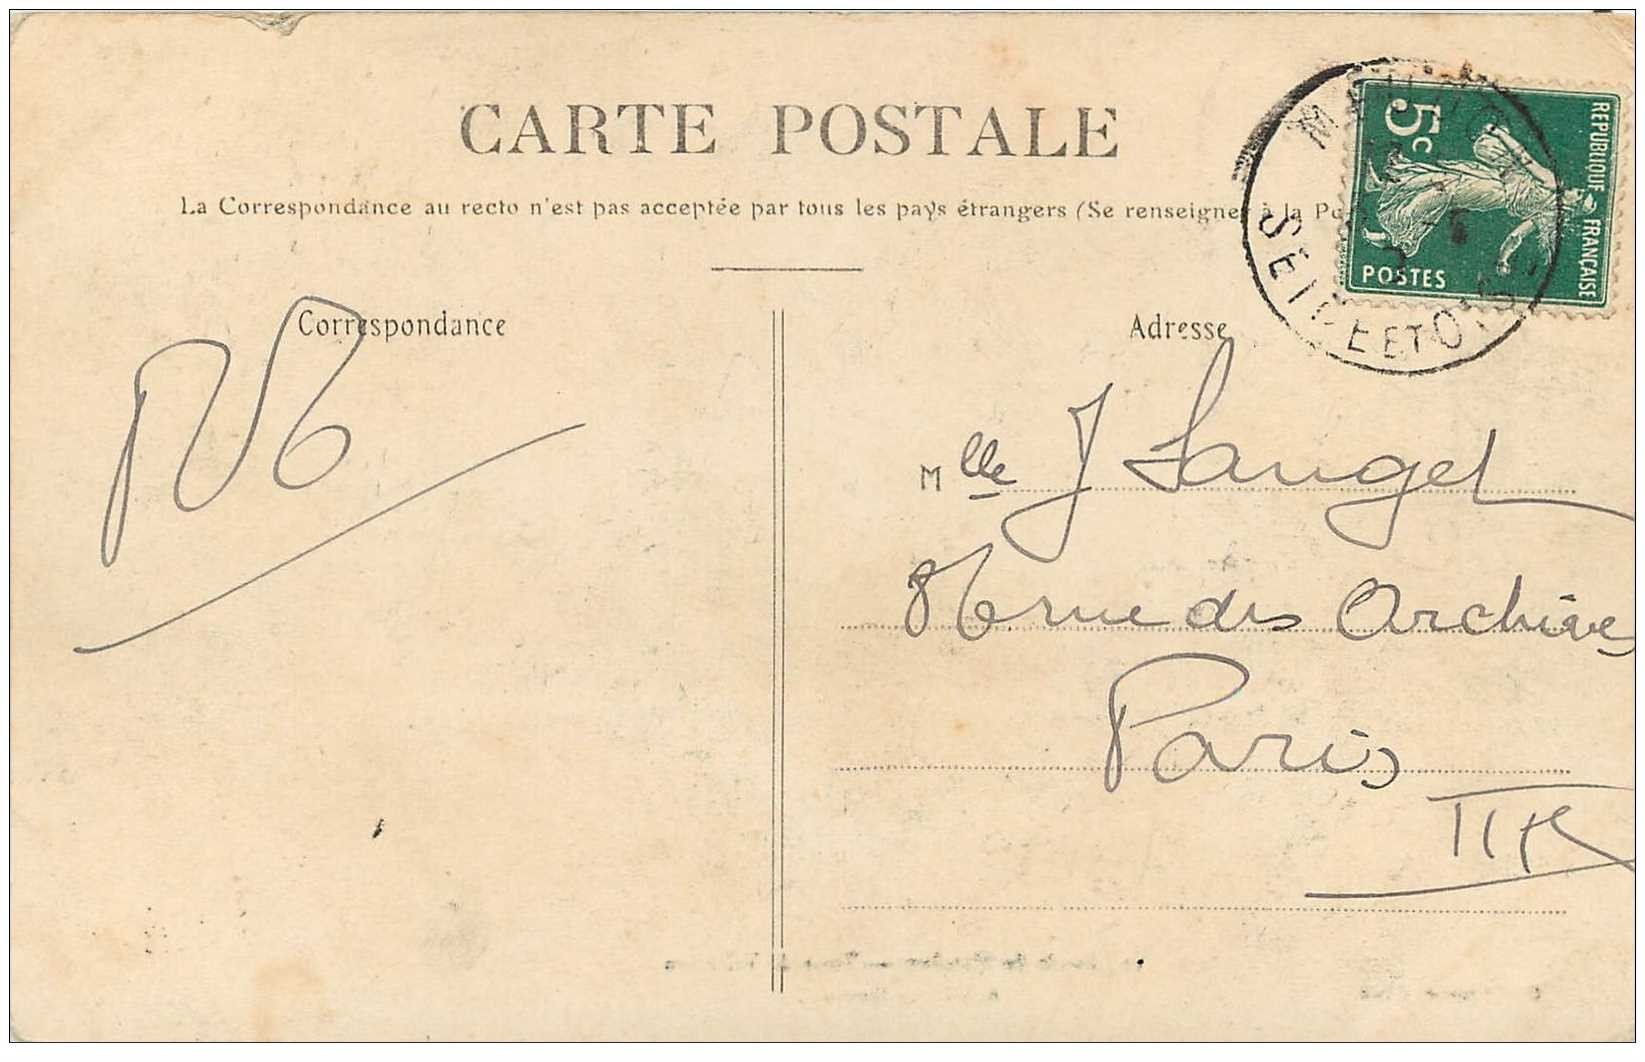 CARTE POSTALE
La Correspondance au recto n'est pas acceptée par tous les pays étrangers (Se renseigner à la Po
REPUBLIQUE FRANÇAISE
5c
POSTES
SEINE ET OISE
Correspondance
Adresse
Mlle J Langel
rue des Archives
Paris